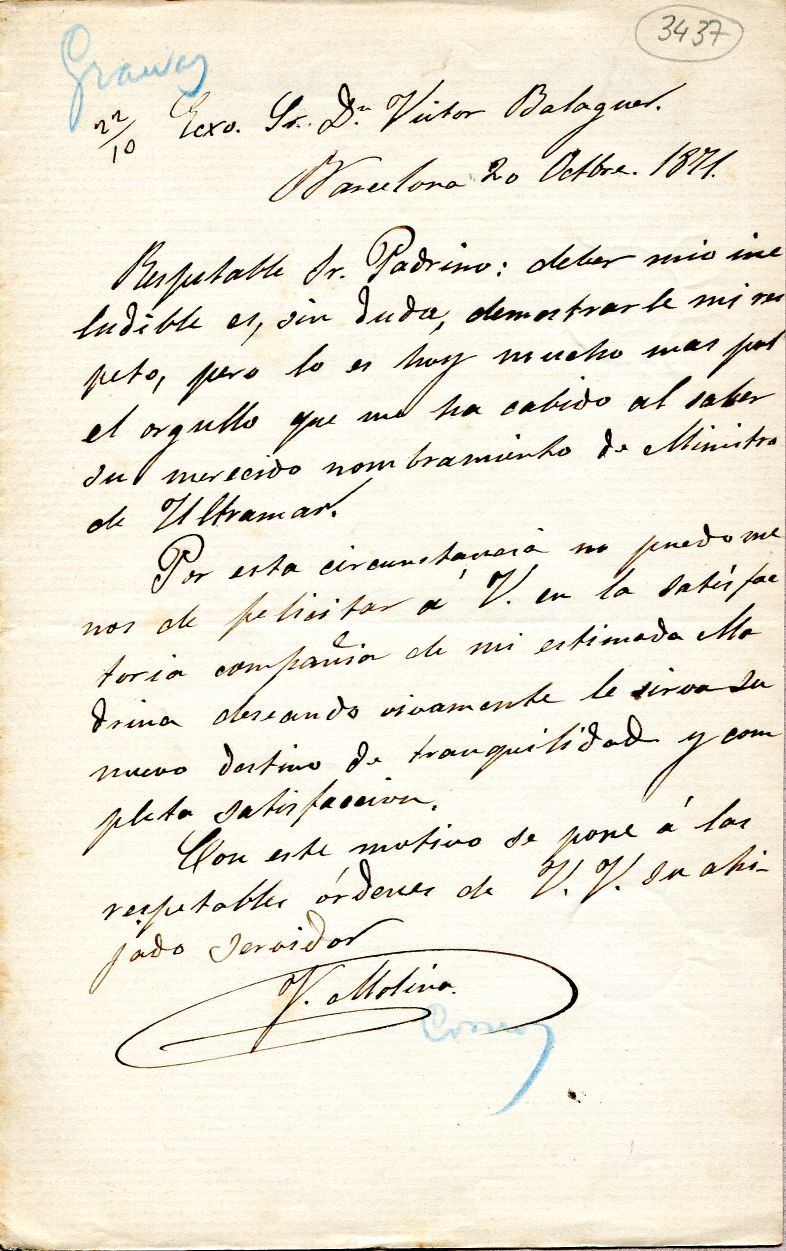 3437
22/10
Ecxo. Sr. Dn. Victor Balaguer.
Barcelona 20 Octbre. 1871.
Respetable Sr. Padrino: deber mio ine
ludible es, sin duda, demostrarle mi res
peto, pero lo es hoy mucho mas por
el orgullo que me ha cabido al saber
su merecido nombramiento de Ministro
de Ultramar.
Por esta circunstancia no puedo me
nos de felicitar á V. en la satisfac
toria compañia de mi estimada Ma
drina deseando vivamente le sirva su
nuevo destino de tranquilidad y com
pleta satisfaccion.
Con este motivo se pone á las
respetables órdenes de V. V. su ahi-
jado servidor
V. Molina.